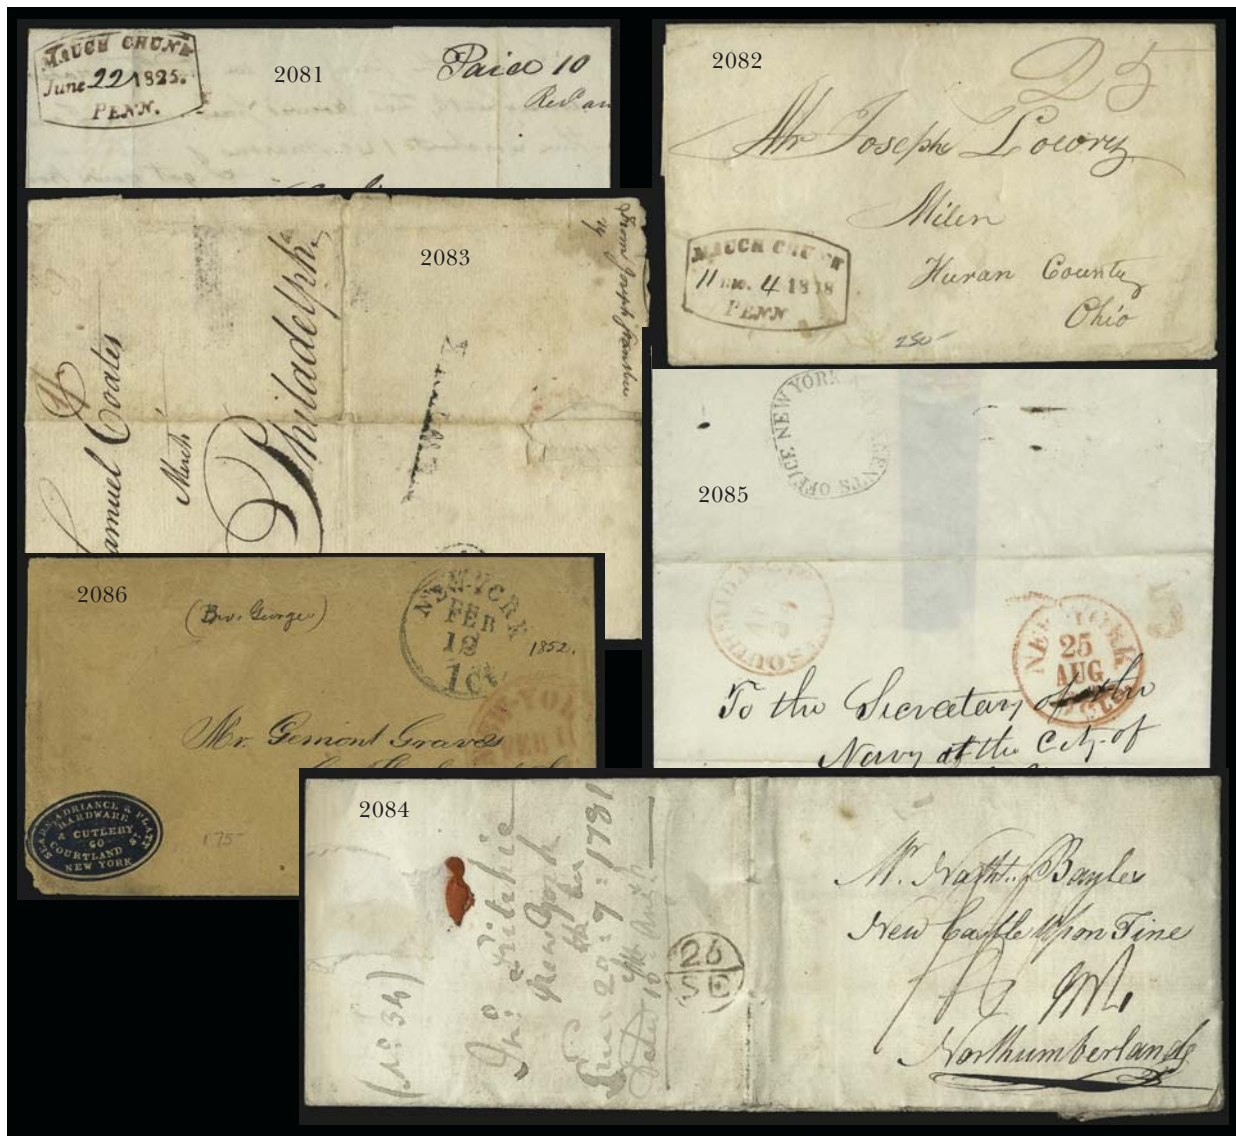 2081
MAUCH CHUNK
June 22 1825.
PENN.
Paid 10
2082
25
Mr Joseph Lowry
Milen
Huran County
Ohio
MAUCH CHUNK
11 mo. 4 1818
PENN
250-
2083
Samuel Coates
Mercht
Philadelphia
From Joseph
NEW YORK
2085
OFFICE NEW YORK
NEW YORK
25
AUG
To the Secretary of the
Navy at the City of
2086
(Bro. George)
NEW-YORK
FEB
12
1852.
NEW-YORK
FEB 11
Mr. Gemont Graves
SEARS, ADRIANCE & PLATT
HARDWARE
& CUTLERY
60
COURTLAND St
NEW YORK
175-
2084
(No. 34)
Jno. Ritchie
New York
7th 1781
26
SE
Mr. Natht. Bayles
New Castle Upon Tine
Northumberland